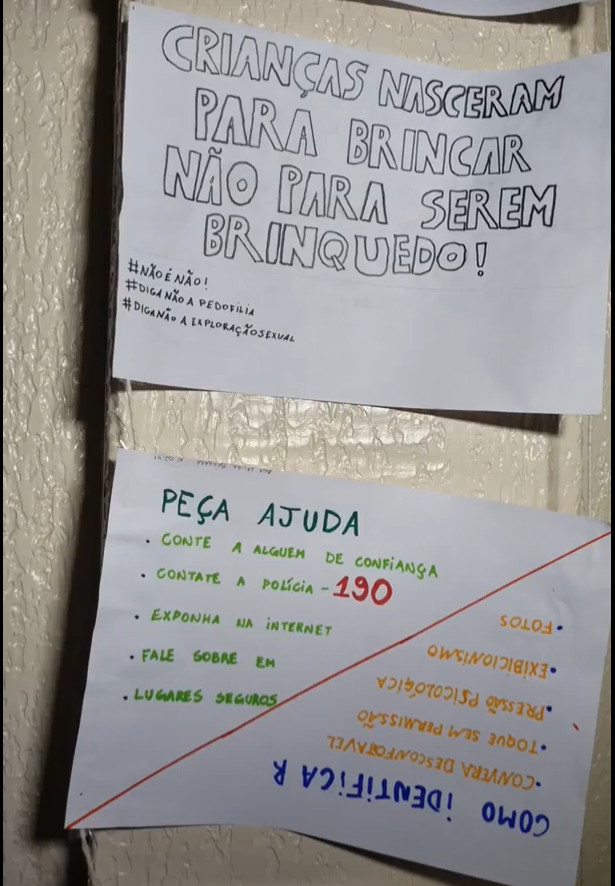 CRIANÇAS NASCERAM
PARA BRINCAR
NÃO PARA SEREM
BRINQUEDO!
#NÃO É NÃO!
#DIGA NÃO A PEDOFILIA
#DIGA NÃO A EXPLORAÇÃOSEXUAL
PEÇA AJUDA
• CONTE A ALGUEM DE CONFIANÇA
• CONTATE A POLÍCIA - 190
• EXPONHA NA INTERNET
• FALE SOBRE EM
• LUGARES SEGUROS
COMO IDENTIFICAR
• CONVERA DESCONFORTAVEL
• TOQUE SEM PERMISSÃO
• PRESSÃO PSICOLÓGICA
• EXIBICIONISMO
• FOTOS